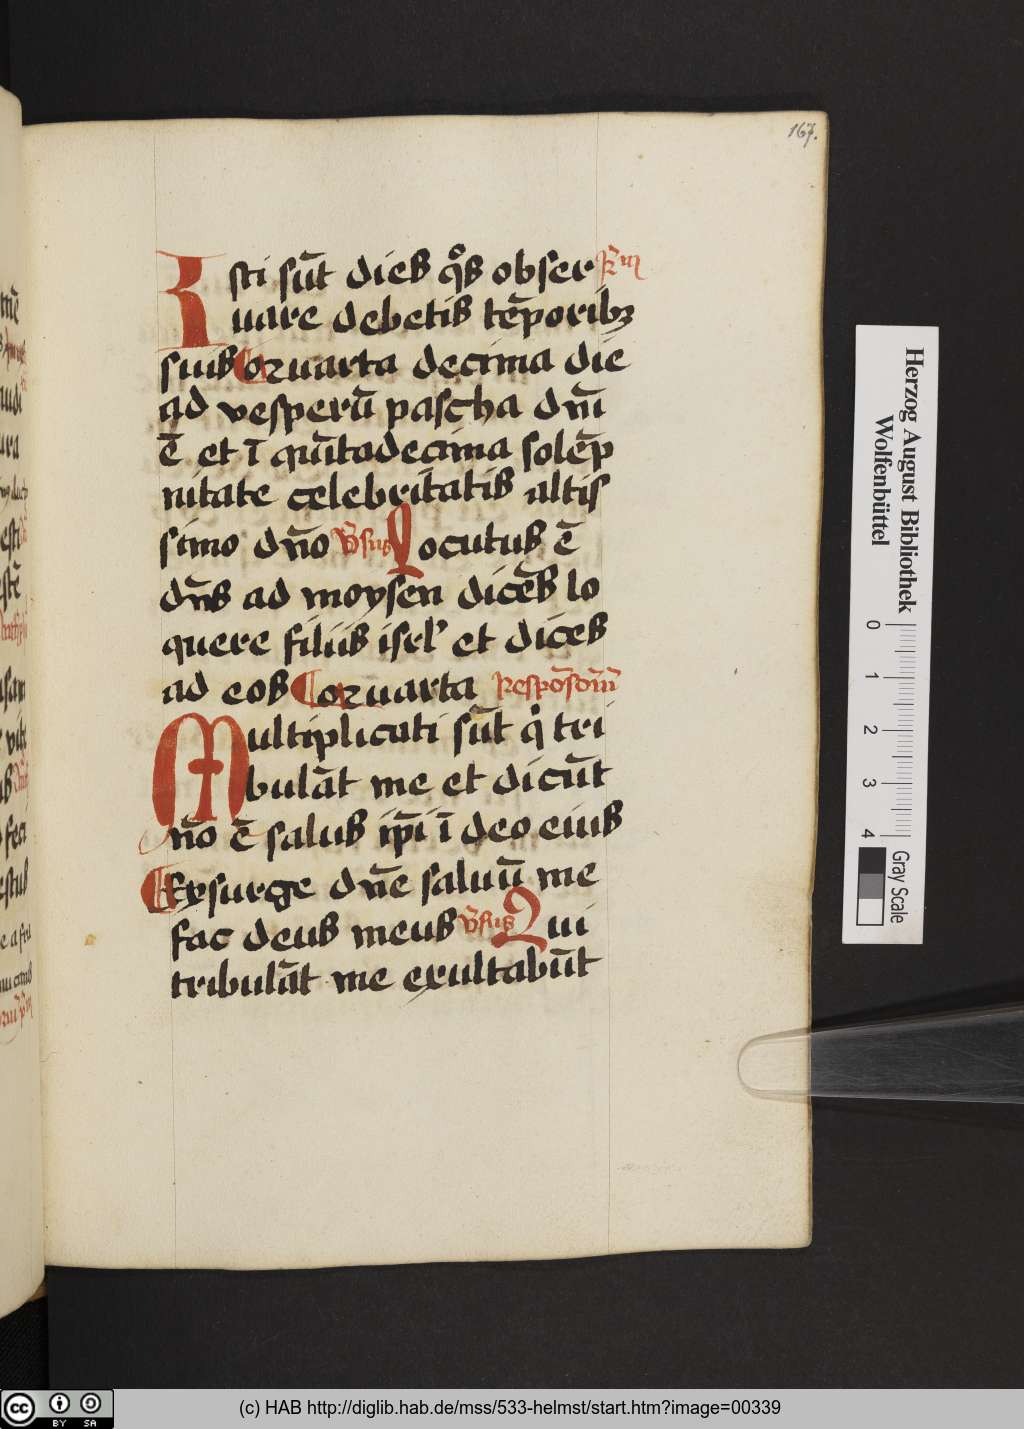 167.
Isti sūt dies qͦs obser R̄m
uare debetis tēporibꝫ
suis Qvuarta decima die
ad vesperū pascha dn̄i
ē et ī quītadecima solēp
nitate celebritatis altis
simo dn̄o v̄sus Locutus ē
dn̄s ad moysen dicēs lo
quere filiis isrl' et dices
ad eos Qvuarta Respōsoriū
Multiplicati sūt qi tri
bulāt me et dicūt
nō ē salus ip̄i ī deo eius
Exsurge dn̄e saluū me
fac deus meus v̄sus Qui
tribulāt me exultabūt
Herzog August Bibliothek
Wolfenbüttel
0 1 2 3 4
Gray Scale
cc BY SA
(c) HAB http://diglib.hab.de/mss/533-helmst/start.htm?image=00339